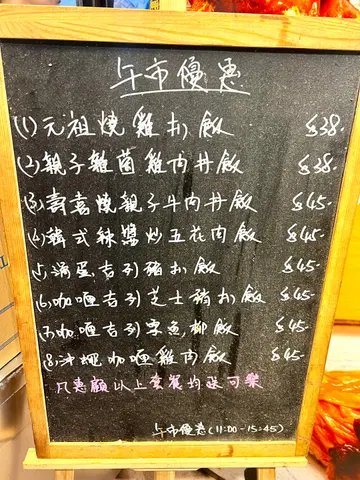 午市優惠
(1) 元祖燒雞扒飯 $38-
(2) 親子雜菌雞肉丼飯 $38-
(3) 壽喜燒親子牛肉丼飯 $45-
(4) 韓式辣醬炒五花肉飯 $45-
(5) 滑蛋吉列豬扒飯 $45-
(6) 咖喱吉列芝士豬扒飯 $45-
(7) 咖喱吉列魚柳飯 $45-
(8) 沖繩咖喱雞肉飯 $45-
凡惠顧以上套餐均送可樂
午市優惠 (11:00-15:45)